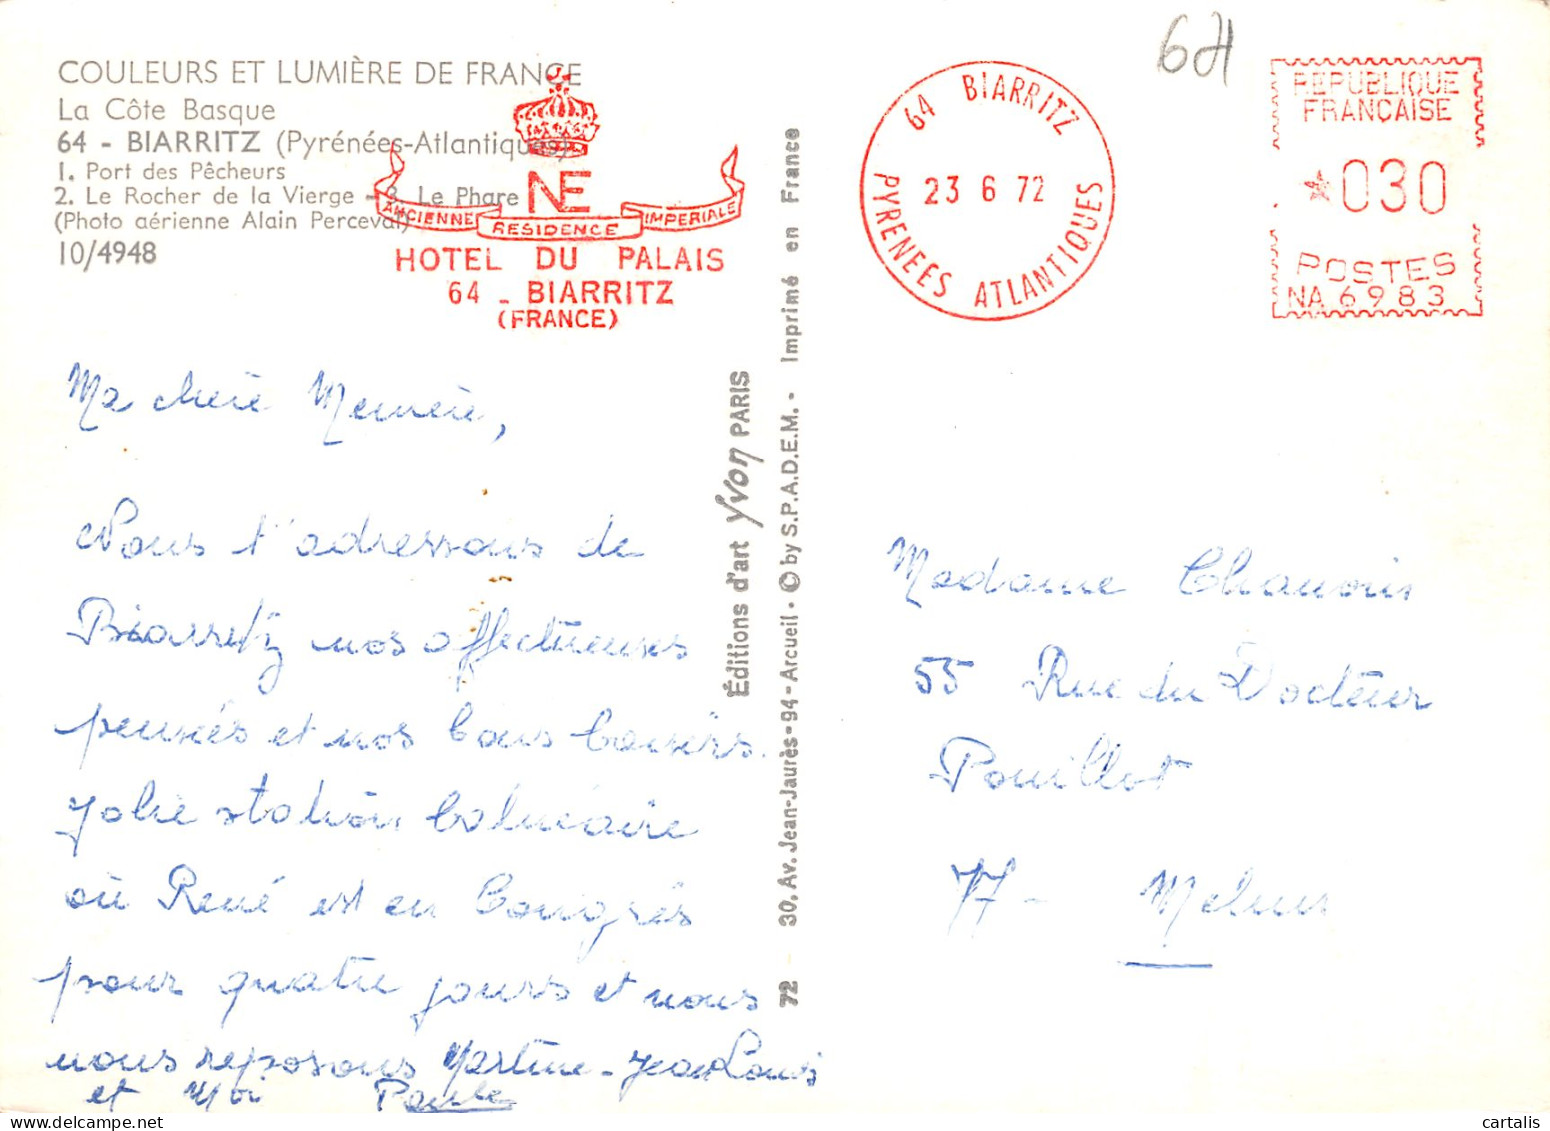 COULEURS ET LUMIÈRE DE FRANCE
La Côte Basque
64 - BIARRITZ (Pyrénées-Atlantiques)
1. Port des Pêcheurs
2. Le Rocher de la Vierge - 3. Le Phare
(Photo aérienne Alain Perceval)
10/4948
NE
ANCIENNE RESIDENCE IMPERIALE
HOTEL DU PALAIS
64 - BIARRITZ
(FRANCE)
64 BIARRITZ
23 6 72
PYRENEES ATLANTIQUES
64
REPUBLIQUE
FRANÇAISE
030
POSTES
NA 6983
Ma chère Memère,
Nous t'adressons de
Biarritz nos affectueuses
pensées et nos bons baisers.
Jolie station balnéaire
où René est en Congrès
pour quatre jours et nous
nous reposons Martine - Jean Louis
et Moi Paule
Éditions d'art Yvon PARIS
72 - 30, Av. Jean-Jaurès - 94 - Arcueil · © by S.P.A.D.E.M. - Imprimé en France
Madame
55 Rue du Docteur
Pouillot
77 - Melun
cartalis